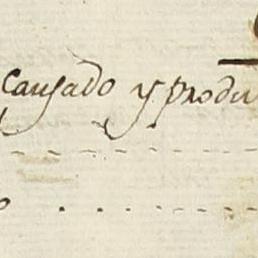 causado y produ